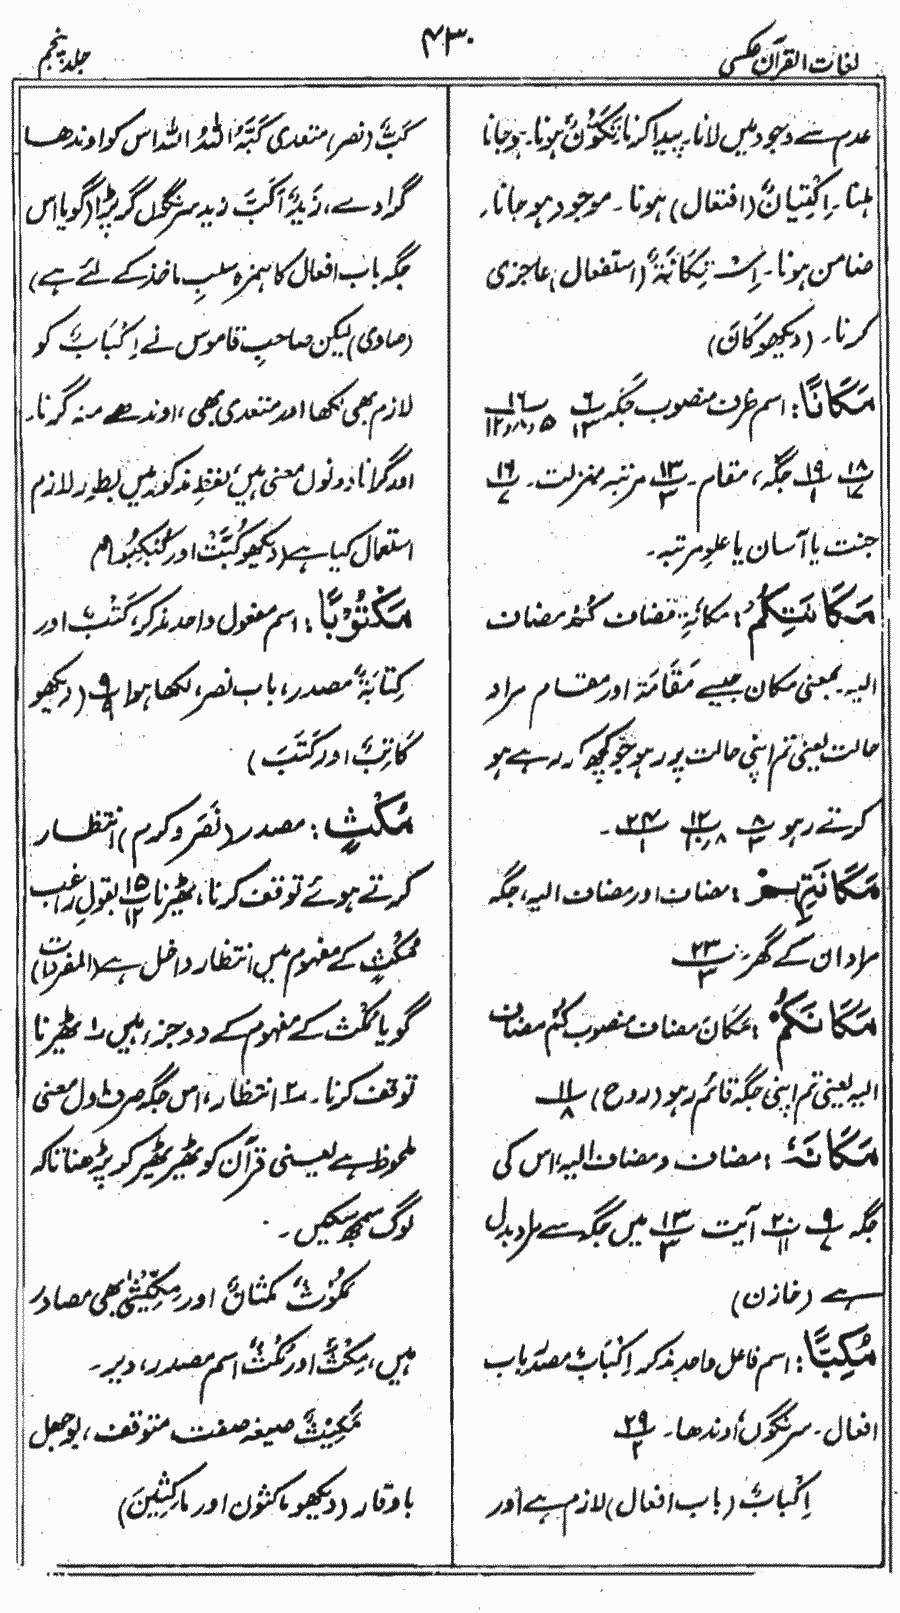 لغات القرآن عکسی
۴۳۰
جلد پنجم
عدم سے وجود میں لانا۔ پیدا کرنا تَکَوُّنٌ ہونا۔ ہوجانا
ہلنا۔ اِکْتِیَانٌ (افتعال) ہونا۔ موجود ہوجانا،
ضامن ہونا۔ اِسْتِکَانَۃٌ (استفعال) عاجزی
کرنا۔ (دیکھو کَانَ)
مَکَانًا: اسم ظرف منصوب جگہ ۶/۱۲ ۱۶/۵،۸،۱۲
۱۸/۱۷ ۱۹/۱ جگہ، مقام۔ ۱۳/۳ مرتبہ منزلت۔ ۱۶/۷
جنت یا آسمان یا علوِ مرتبہ۔
مَکَانَتِکُمْ: مکانۃِ مضاف کُمْ مضاف
الیہ بمعنی مکان جیسے مَقَامَۃ اور مقام مراد
حالت یعنی تم اپنی حالت پر رہو جو کچھ کر رہے ہو
کرتے رہو ۸/۳ ۱۲/۸،۱۰ ۲۴/۱ ۔
مَکَانَتِہِمْ: مضاف اور مضاف الیہ، جگہ
مراد ان کے گھر۔ ۲۳/۳
مَکَانَکُمْ: مَکَانَ مضاف منصوب کُمْ مضاف
الیہ یعنی تم اپنی جگہ قائم رہو (روح) ۱۱/۸
مَکَانَہٗ: مضاف و مضاف الیہ، اس کی
جگہ ۹/۷ ۲۰/۱۱ آیت ۱۳/۳ میں جگہ سے مراد بدل
ہے (خازن)
مُکِبًّا: اسم فاعل واحد مذکر اِکْبَابٌ مصدر باب
افعال۔ سرنگوں، اوندھا۔ ۲۹/۲
اِکْبَابٌ (باب افعال) لازم ہے اور
کَبٌّ (نصر) متعدی کَبَّہُ اللّٰہُ اللہ اس کو اوندھا
گرادے، زَیْدٌ اَکَبَّ زید سرنگوں گر پڑا (گویا اس
جگہ باب افعال کا ہمزہ سلبِ ماخذ کے لئے ہے)
(صاوی) لیکن صاحبِ قاموس نے اِکْبَابٌ کو
لازم بھی لکھا اور متعدی بھی، اوندھے منہ گرنا۔
اور گرانا دونوں معنی ہیں، لفظِ مذکور میں بطورِ لازم
استعمال کیا ہے (دیکھو کُبَّتْ اور کُبْکِبُوْا)
مَکْتُوْبًا: اسم مفعول واحد مذکر، کَتْبٌ اور
کِتَابَۃٌ مصدر، باب نصر، لکھا ہوا ۹/۹ (دیکھو
کَاتِبٌ اور کَتَبَ)
مُکْثٍ: مصدر (نَصَرَ و کرم) انتظار
کرتے ہوئے توقف کرنا، ٹھیرنا ۱۵/۱۲ بقولِ راغب
مُکْثٍ کے مفہوم میں انتظار داخل ہے (المفردات)
گویا مُکْث کے مفہوم کے دو جزء ہیں ۱ ٹھیرنا
توقف کرنا۔ ۲ انتظار، اس جگہ صرف اول معنی
ملحوظ ہے یعنی قرآن کو ٹھیر ٹھیر کر پڑھنا تاکہ
لوگ سمجھ سکیں۔
مُکُوْثٌ مُکْثَانٌ اور مِکِّیْثٰی بھی مصادر
ہیں، مِکْثٌ اور مُکْثٌ اسم مصدر، دیر۔
مَکِیْثٌ صیغہ صفت، متوقف، بوجھل
باوقار (دیکھو ماکثون اور مَاکِثِیْنَ)